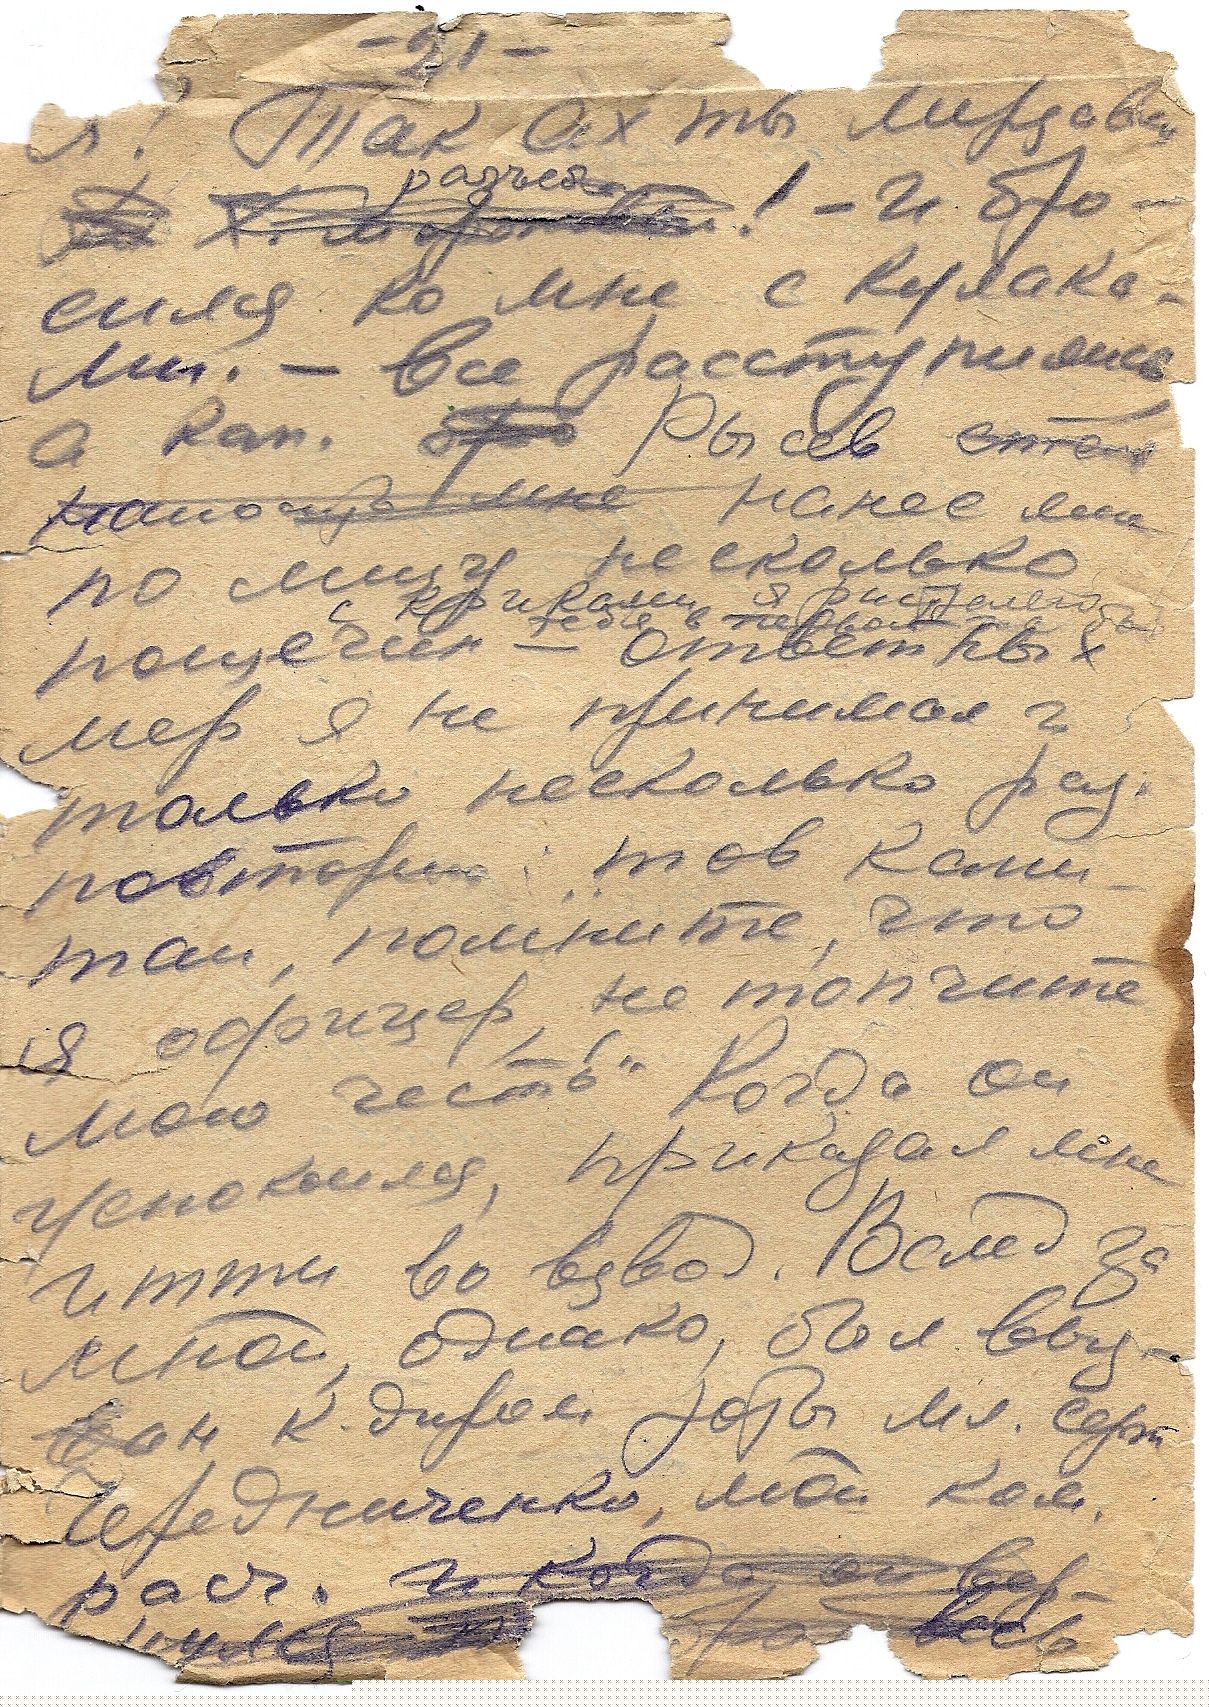 - 21 -
я! Так Ах ты мерзавец
разъеба
! - и бро-
сился ко мне с кулака-
ми. - Все расступились
а кап. Рысев
мне нанес мне
по лицу несколько
с криками я расстреляю
тебя в первом
пощечин - ответных
мер я не принимал и
только несколько раз.
повторил: тов капи-
тан, помните, что
я офицер, не топчите
мою честь" Когда он
успокоился, приказал мне
итти во взвод. Вслед за
мной, однако, был выз-
ван к-диром роты мл. серж
Чередниченко, мой ком.
расч. и когда он вер-
нулся весь